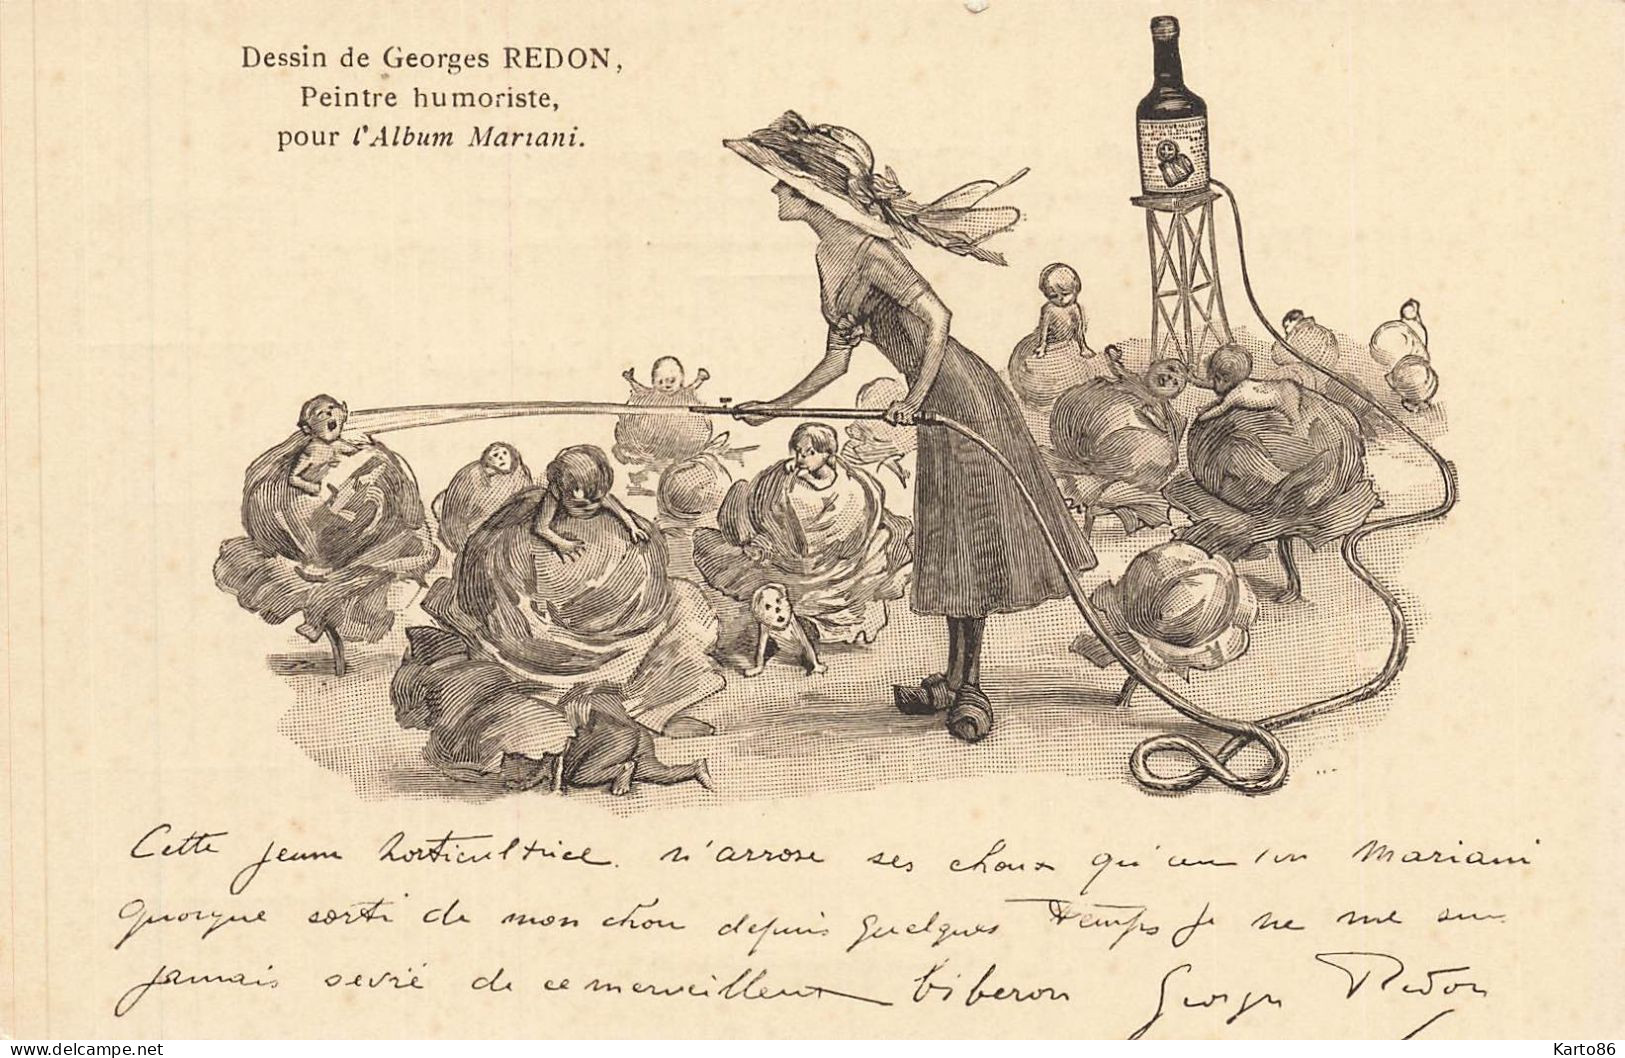 Dessin de Georges REDON,
Peintre humoriste,
pour l'Album Mariani.
Cette jeune horticultrice n'arrose ses choux qu'au vin Mariani
Quoique sorti de mon chou depuis quelques temps je ne me suis
jamais sevré de ce merveilleux biberon Georges Redon
www.delcampe.net
Karto86